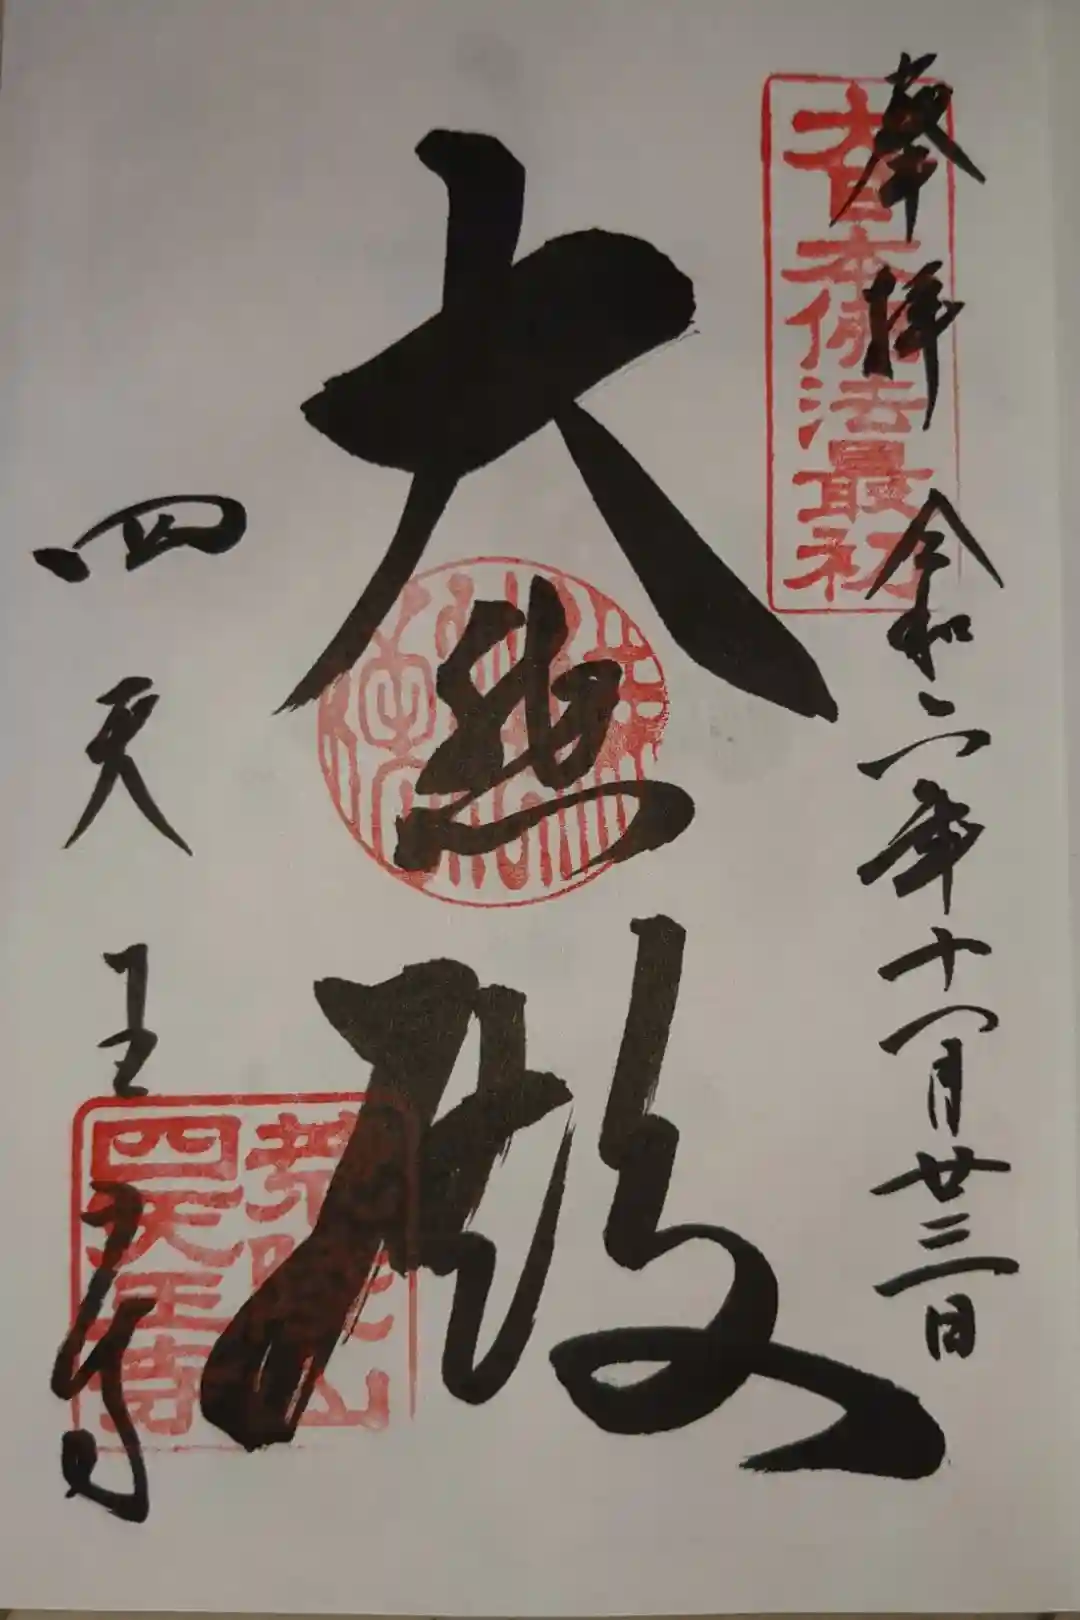 奉拝
令和二年十一月廿三日
大日本佛法最初
大悲殿
四天王寺
荒陵山
四天王寺